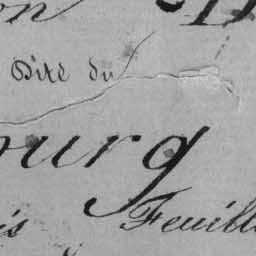 on
Dire du
ourg
is Feuill